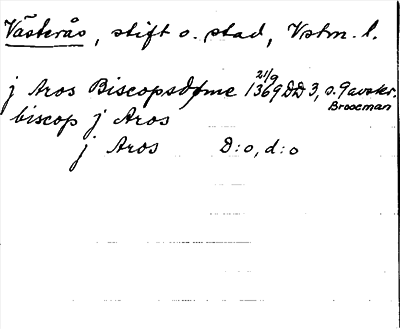 Västerås, stift o. stad, Vstm. l.
j Aros Biscopsdøme 21/9 1369 DD 3, s. 9 avskr. Brooeman
biscop j Aros
j Aros D:o, d:o